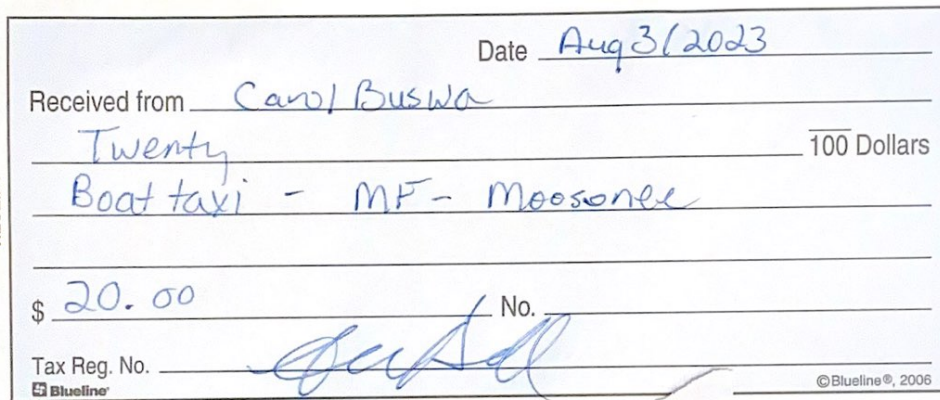 Date Aug 3/2023
Received from Carol Buswa
Twenty 100 Dollars
Boat taxi - MF - Moosonee
$ 20.00 No.
Tax Reg. No.
Blueline ©Blueline®, 2006